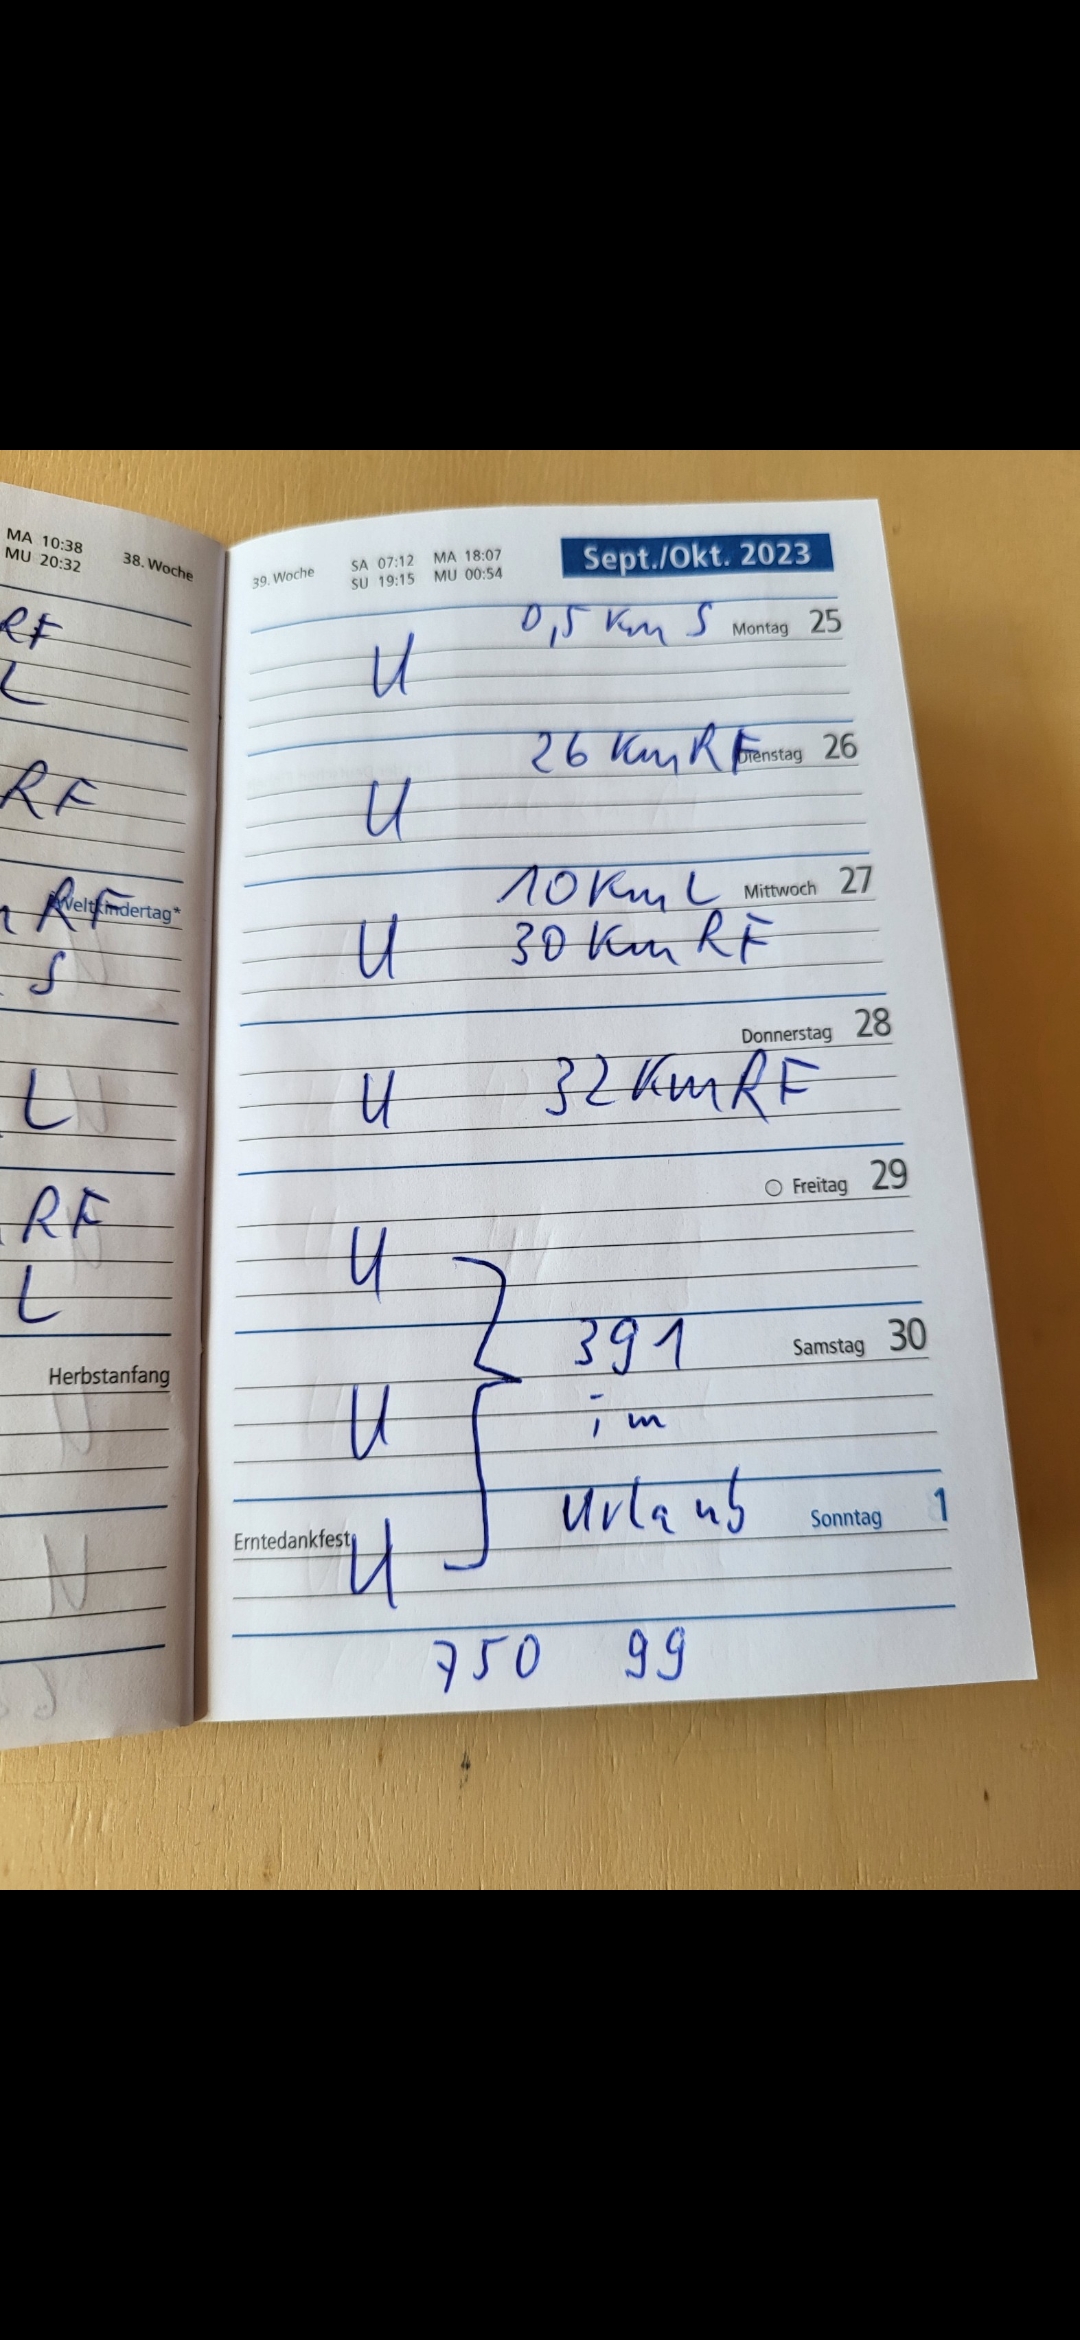 MA 10:38
MU 20:32
38. Woche
RF
L
RF
Weltkindertag*
RF
S
L
RF
L
Herbstanfang
39. Woche
SA 07:12 MA 18:07
SU 19:15 MU 00:54
Sept./Okt. 2023
0,5 km S Montag 25
U
26 km RF Dienstag 26
U
10 km L Mittwoch 27
U 30 km RF
Donnerstag 28
U 32 km RF
Freitag 29
U
391 Samstag 30
U im
Urlaub Sonntag 1
Erntedankfest U
750 99